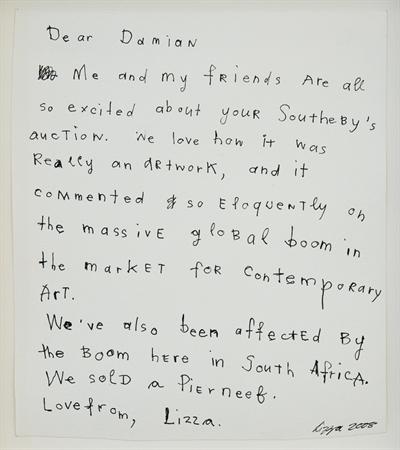 Dear Damian
Me and my friends are all
so excited about your Southeby's
auction. We love how it was
Really an artwork, and it
commented so eloquently on
the massive global boom in
the market for contemporary
Art.
We've also been affected by
the boom here in South Africa.
We sold a Pierneef.
Love from, Lizza.
Lizza 2008